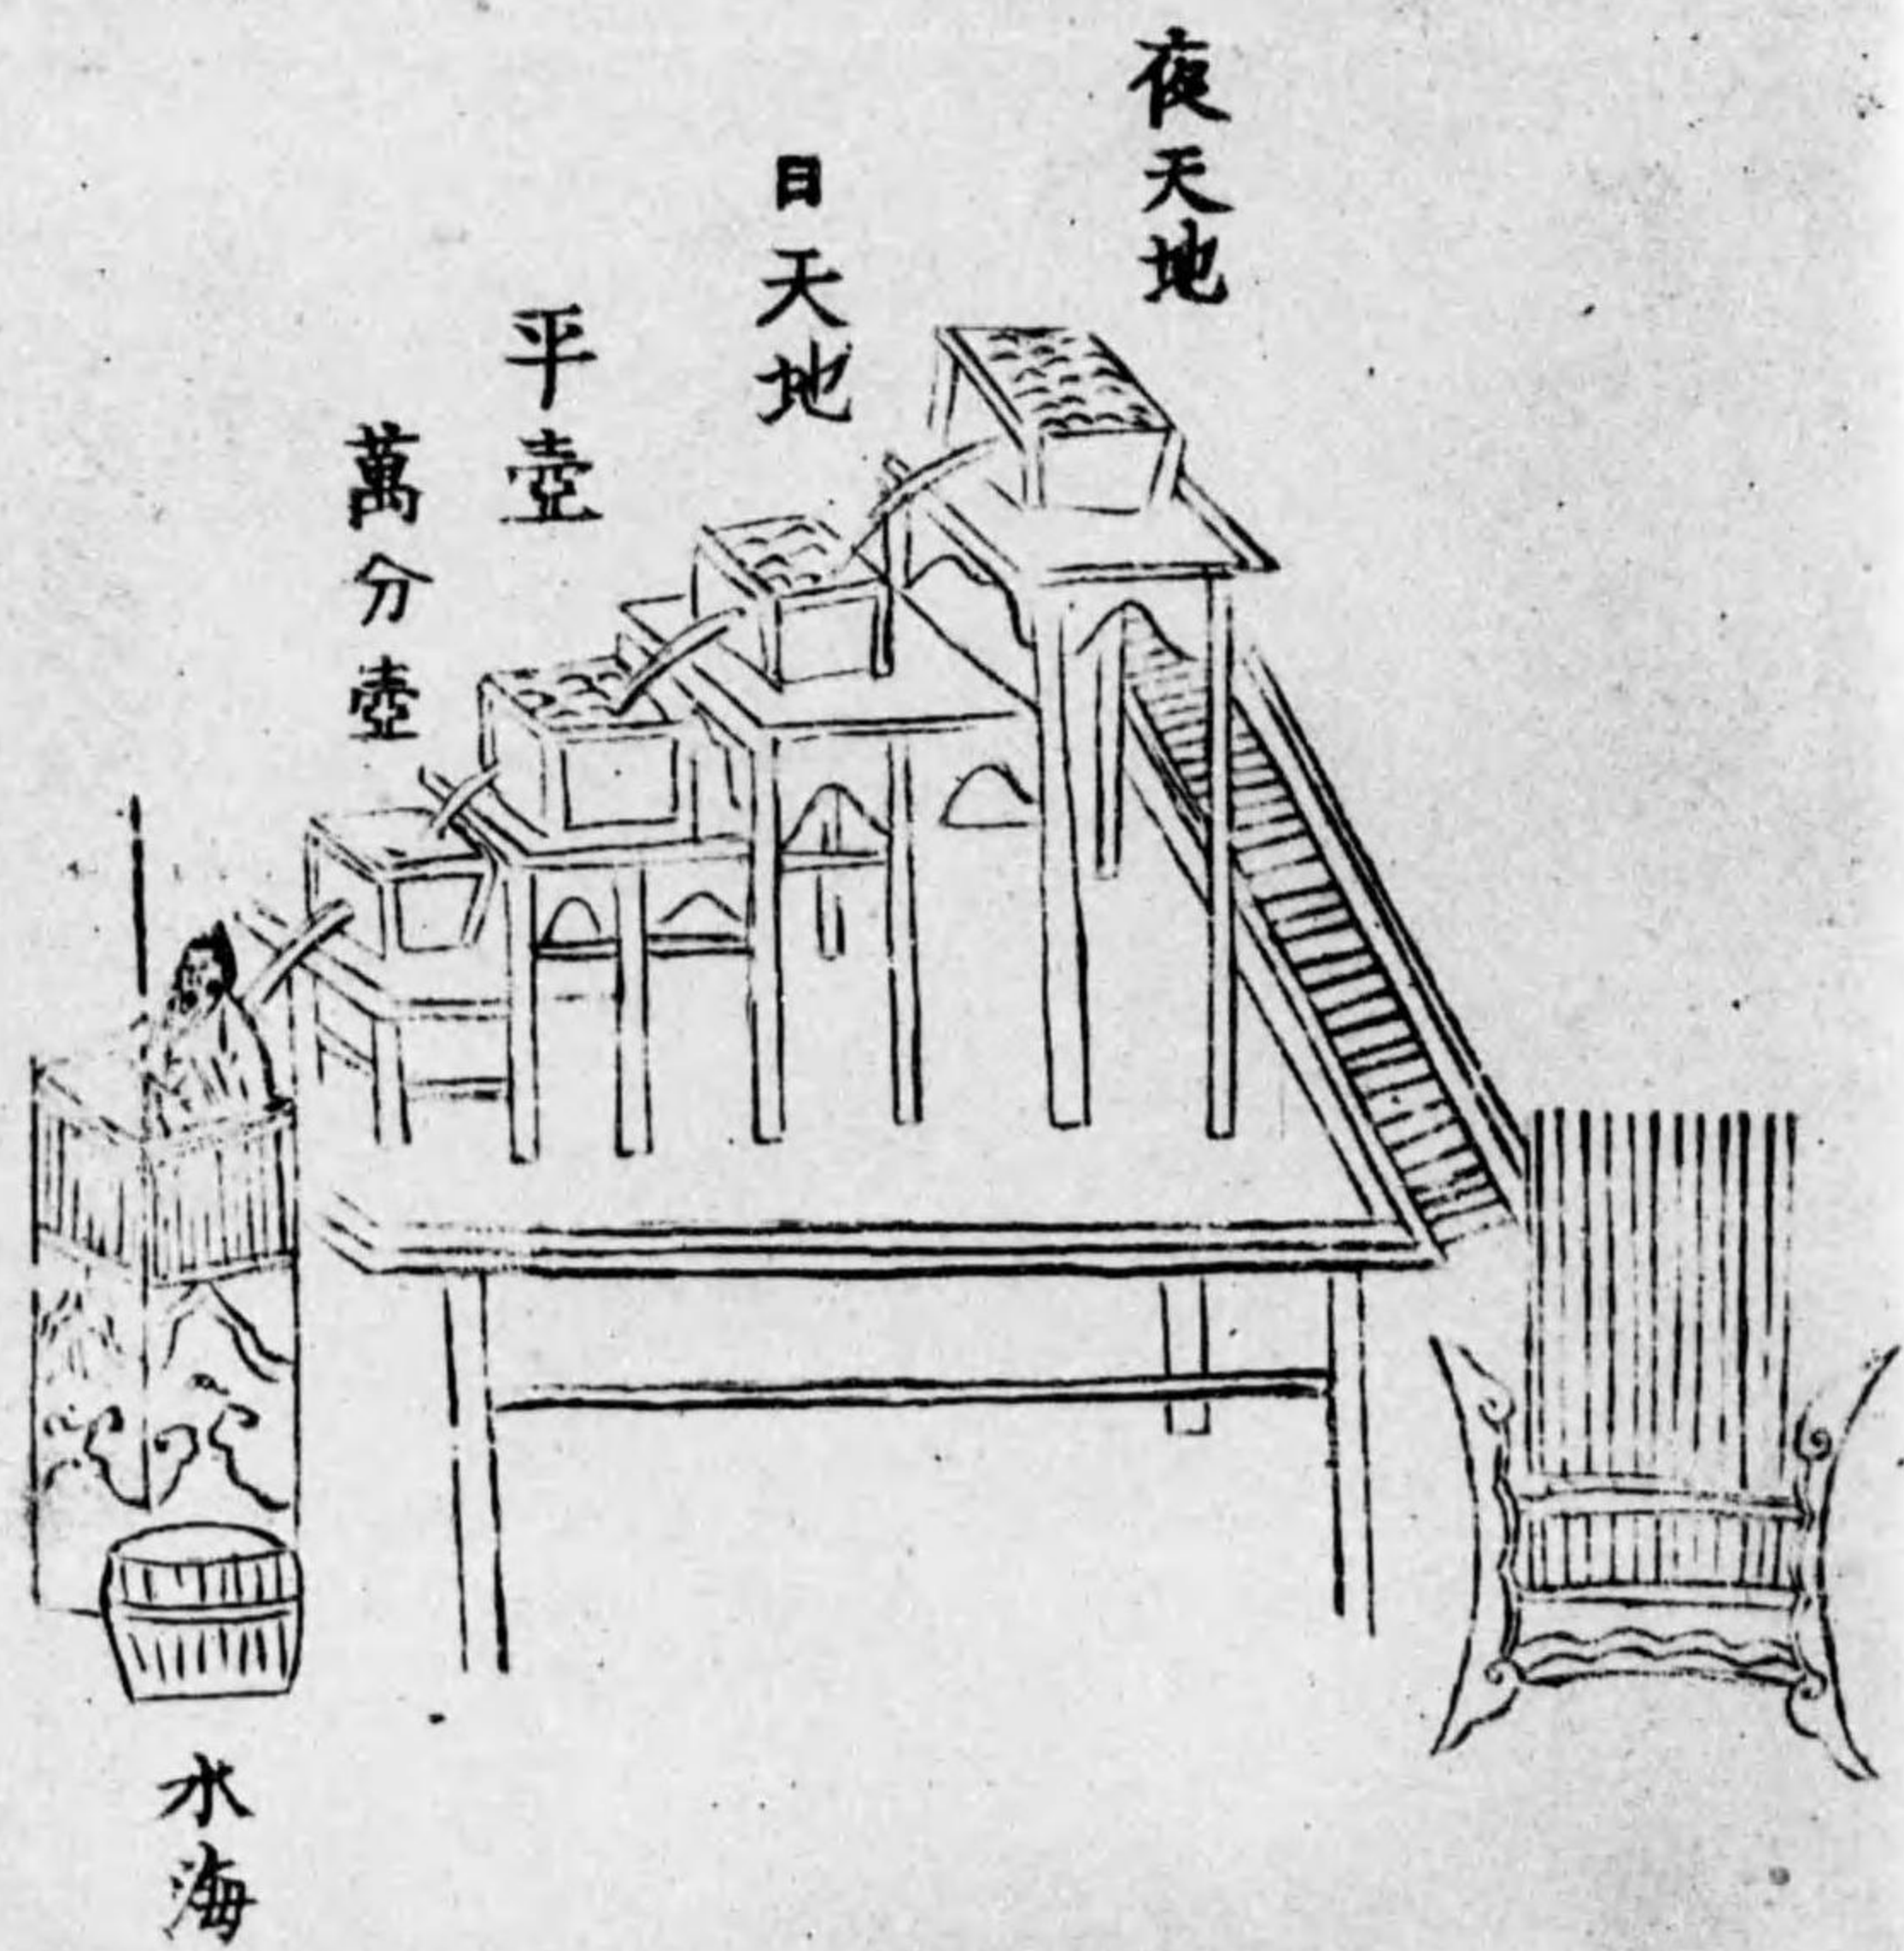 夜天地
日天地
平壺
萬分壺
水海